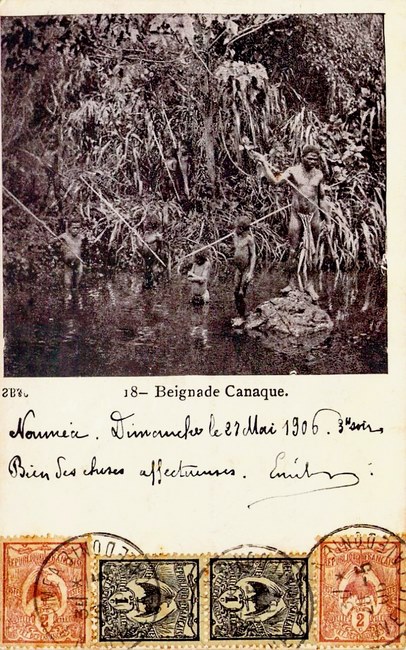 SBSJ
18– Beignade Canaque.
Nouméa. Dimanche le 27 Mai 1906. 3h soir
Bien des choses affectueuses. Emile
RÉPUBLIQUE FRANÇAISE
2
1
1
RÉPUBLIQUE FRANÇAISE
2